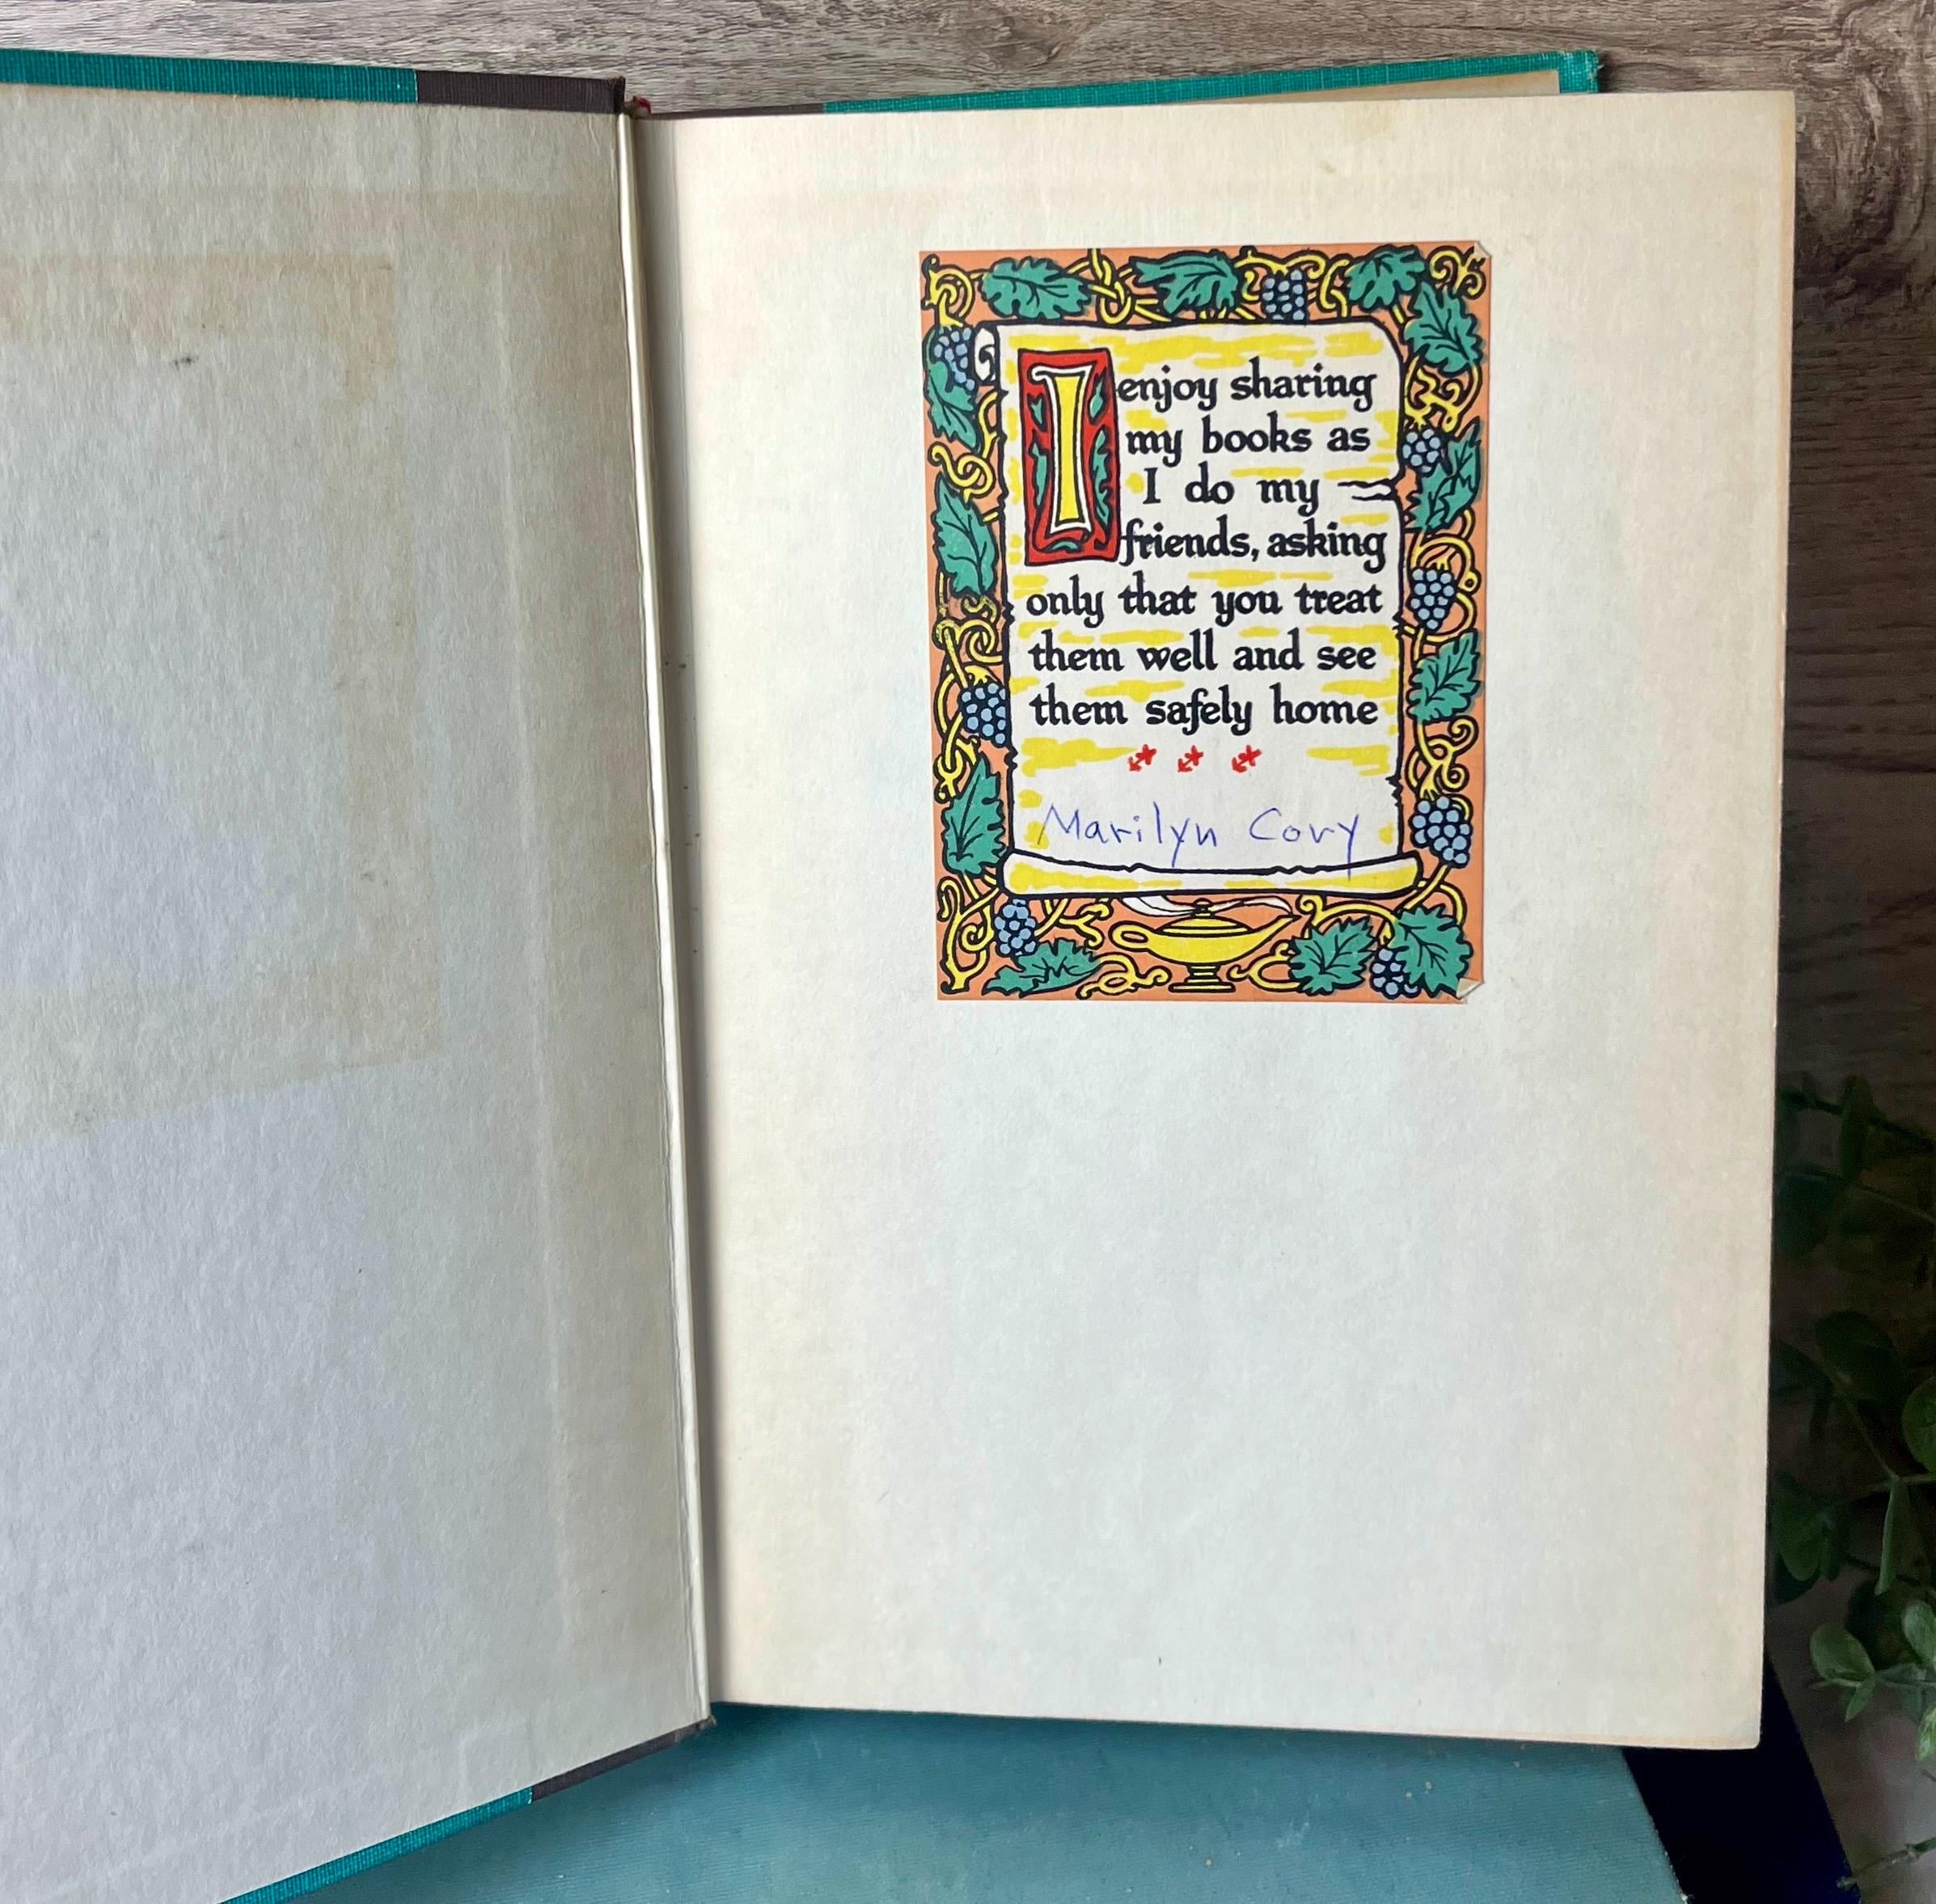 I enjoy sharing
my books as
I do my
friends, asking
only that you treat
them well and see
them safely home
Marilyn Cory